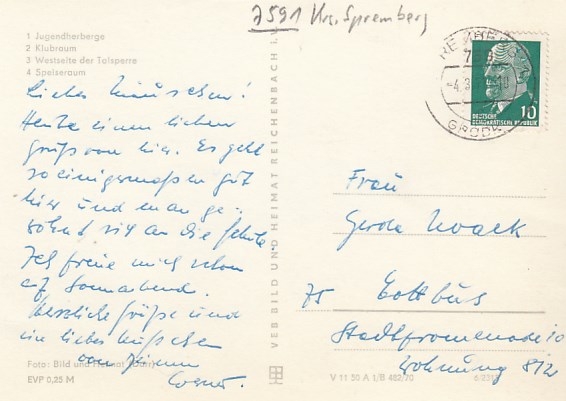 7591 Krs. Spremberg
1 Jugendherberge
2 Klubraum
3 Westseite der Talsperre
4 Speiseraum
Liebes Mäuschen!
Heute einen lieben
Gruß von hier. Es geht
so einigermaßen gut
hier und man ge-
wöhnt sich an die Schule.
Ich freue mich schon
auf Sonnabend.
Herzliche Grüße und
ein liebes Küßchen
von Deinem
Werner.
Foto: Bild und Heimat
EVP 0,25 M
VEB BILD UND HEIMAT REICHENBACH I.V.
DEUTSCHE
DEMOKRATISCHE REPUBLIK
10
Frau
Gerda Noack
75 Cottbus
Stadtpromenade 10
Wohnung 812
V 11 50 A 1/B 482/70